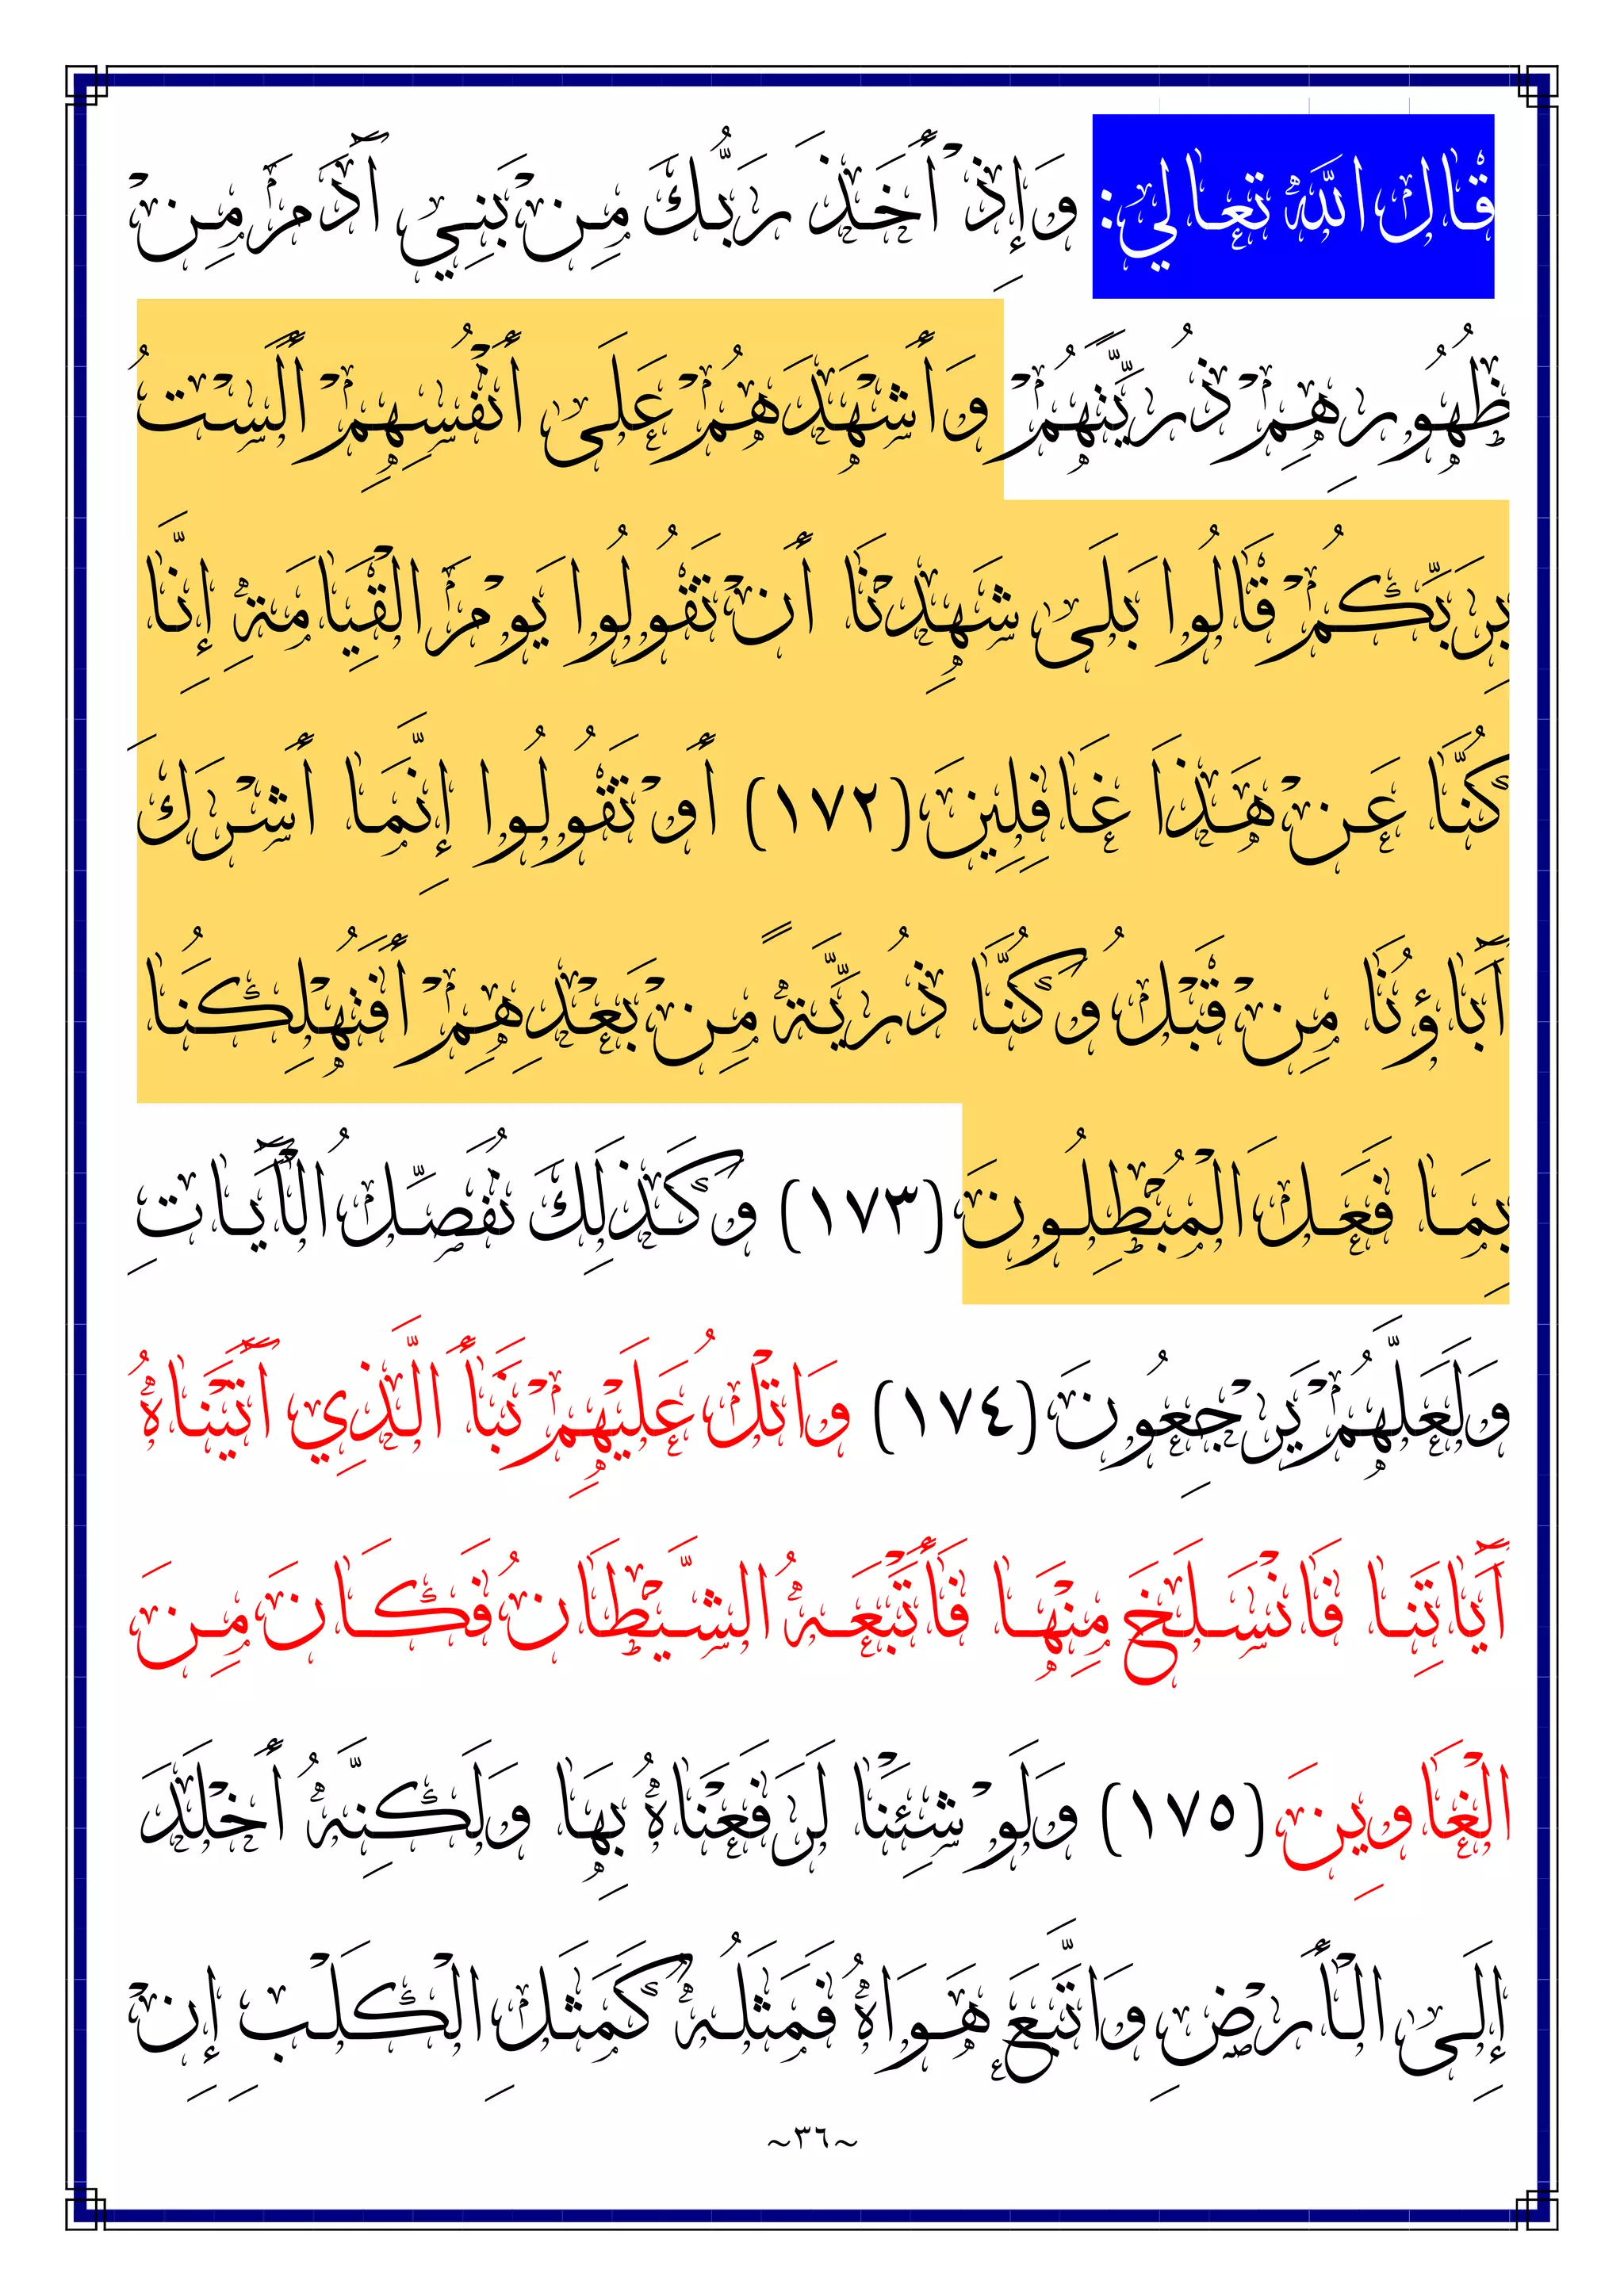 قال الله تعالي: وَإِذْ أَخَذَ رَبُّكَ مِنْ بَنِي آَدَمَ مِنْ
ظُهُورِهِمْ ذُرِّيَّتَهُمْ وَأَشْهَدَهُمْ عَلَى أَنْفُسِهِمْ أَلَسْتُ
بِرَبِّكُمْ قَالُوا بَلَى شَهِدْنَا أَنْ تَقُولُوا يَوْمَ الْقِيَامَةِ إِنَّا
كُنَّا عَنْ هَذَا غَافِلِينَ (١٧٢) أَوْ تَقُولُوا إِنَّمَا أَشْرَكَ
آَبَاؤُنَا مِنْ قَبْلُ وَكُنَّا ذُرِّيَّةً مِنْ بَعْدِهِمْ أَفَتُهْلِكُنَا
بِمَا فَعَلَ الْمُبْطِلُونَ (١٧٣) وَكَذَلِكَ نُفَصِّلُ الْآَيَاتِ
وَلَعَلَّهُمْ يَرْجِعُونَ (١٧٤) وَاتْلُ عَلَيْهِمْ نَبَأَ الَّذِي آَتَيْنَاهُ
آَيَاتِنَا فَانْسَلَخَ مِنْهَا فَأَتْبَعَهُ الشَّيْطَانُ فَكَانَ مِنَ
الْغَاوِينَ (١٧٥) وَلَوْ شِئْنَا لَرَفَعْنَاهُ بِهَا وَلَكِنَّهُ أَخْلَدَ
إِلَى الْأَرْضِ وَاتَّبَعَ هَوَاهُ فَمَثَلُهُ كَمَثَلِ الْكَلْبِ إِنْ
~٣٦~